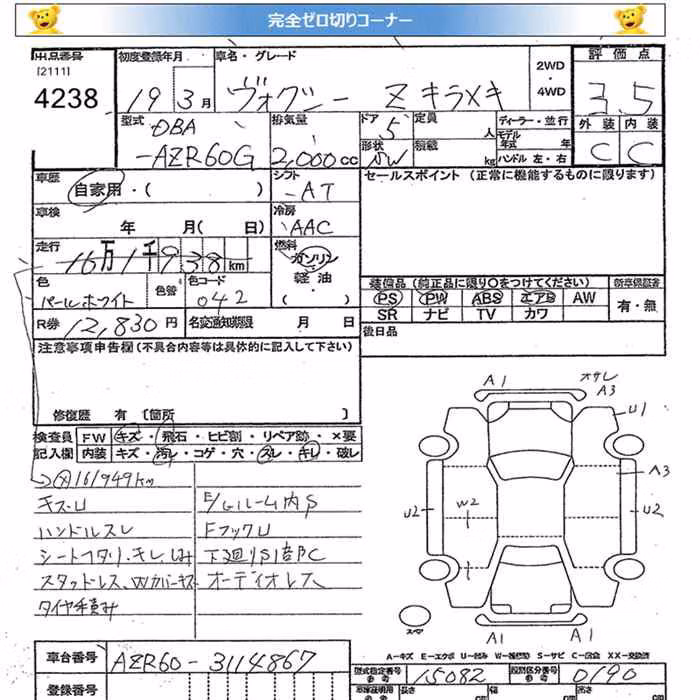 完全ゼロ切りコーナー
出品番号
[2111]
4238
初度登録年月
19 3月
車名・グレード
ヴォクシー Z キラメキ
2WD
・
4WD
評価点
3.5
外装 内装
C C
型式
DBA
-AZR60G
排気量
2,000cc
ドア
5
形状
SW
定員
人
積載
kg
ディーラー・並行
モデル
年式 年
ハンドル 左・右
車歴
自家用・( )
シフト
-AT
セールスポイント (正常に機能するものに限ります)
車検
年 月(日)
冷房
AAC
走行
16万1千938km
燃料
ガソリン
軽油
色
パールホワイト
色替
色コード
042
装備品 (純正品に限り○をつけてください)
PS PW ABS エアB AW
SR ナビ TV カワ
新車保証書
有・無
R券 12,830円
名変通知期限 月 日
後日品
注意事項申告欄(不具合内容等は具体的に記入して下さい)
修復歴 有 〔箇所 〕
検査員
記入欄
FW キズ・飛石・ヒビ割・リペア跡・×要
内装 キズ・汚レ・コゲ・穴・スレ・キレ・破レ
161949km
キズ・U
ハンドルスレ
シートヘタリ・キレ・しみ
スタッドレス、Wカバーキズ
タイヤ手積み
E/Gルーム内S
FフックU
下廻りS1部C
オーディオレス
A1
オサレ
A3
U1
A3
U2
W2
U2
スペア
A1 A1
A-キズ E-エクボ U-凹み W-補修跡 S-サビ C-腐食 XX-交換済
車台番号 AZR60-3114867
登録番号
型式指定番号
参考
15082
類別区分番号
参考
0190
車庫証明用
長さ
幅
高さ